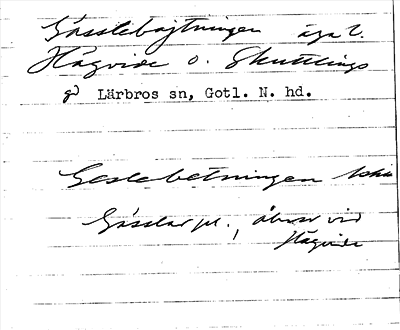 Gåsslebajtningen äga t.
Hägvide o. Skuttlings
gd Lärbros sn, Gotl. N. hd.
Geslebetningen
Gåsslar pl., åkrar vid
Hägvide